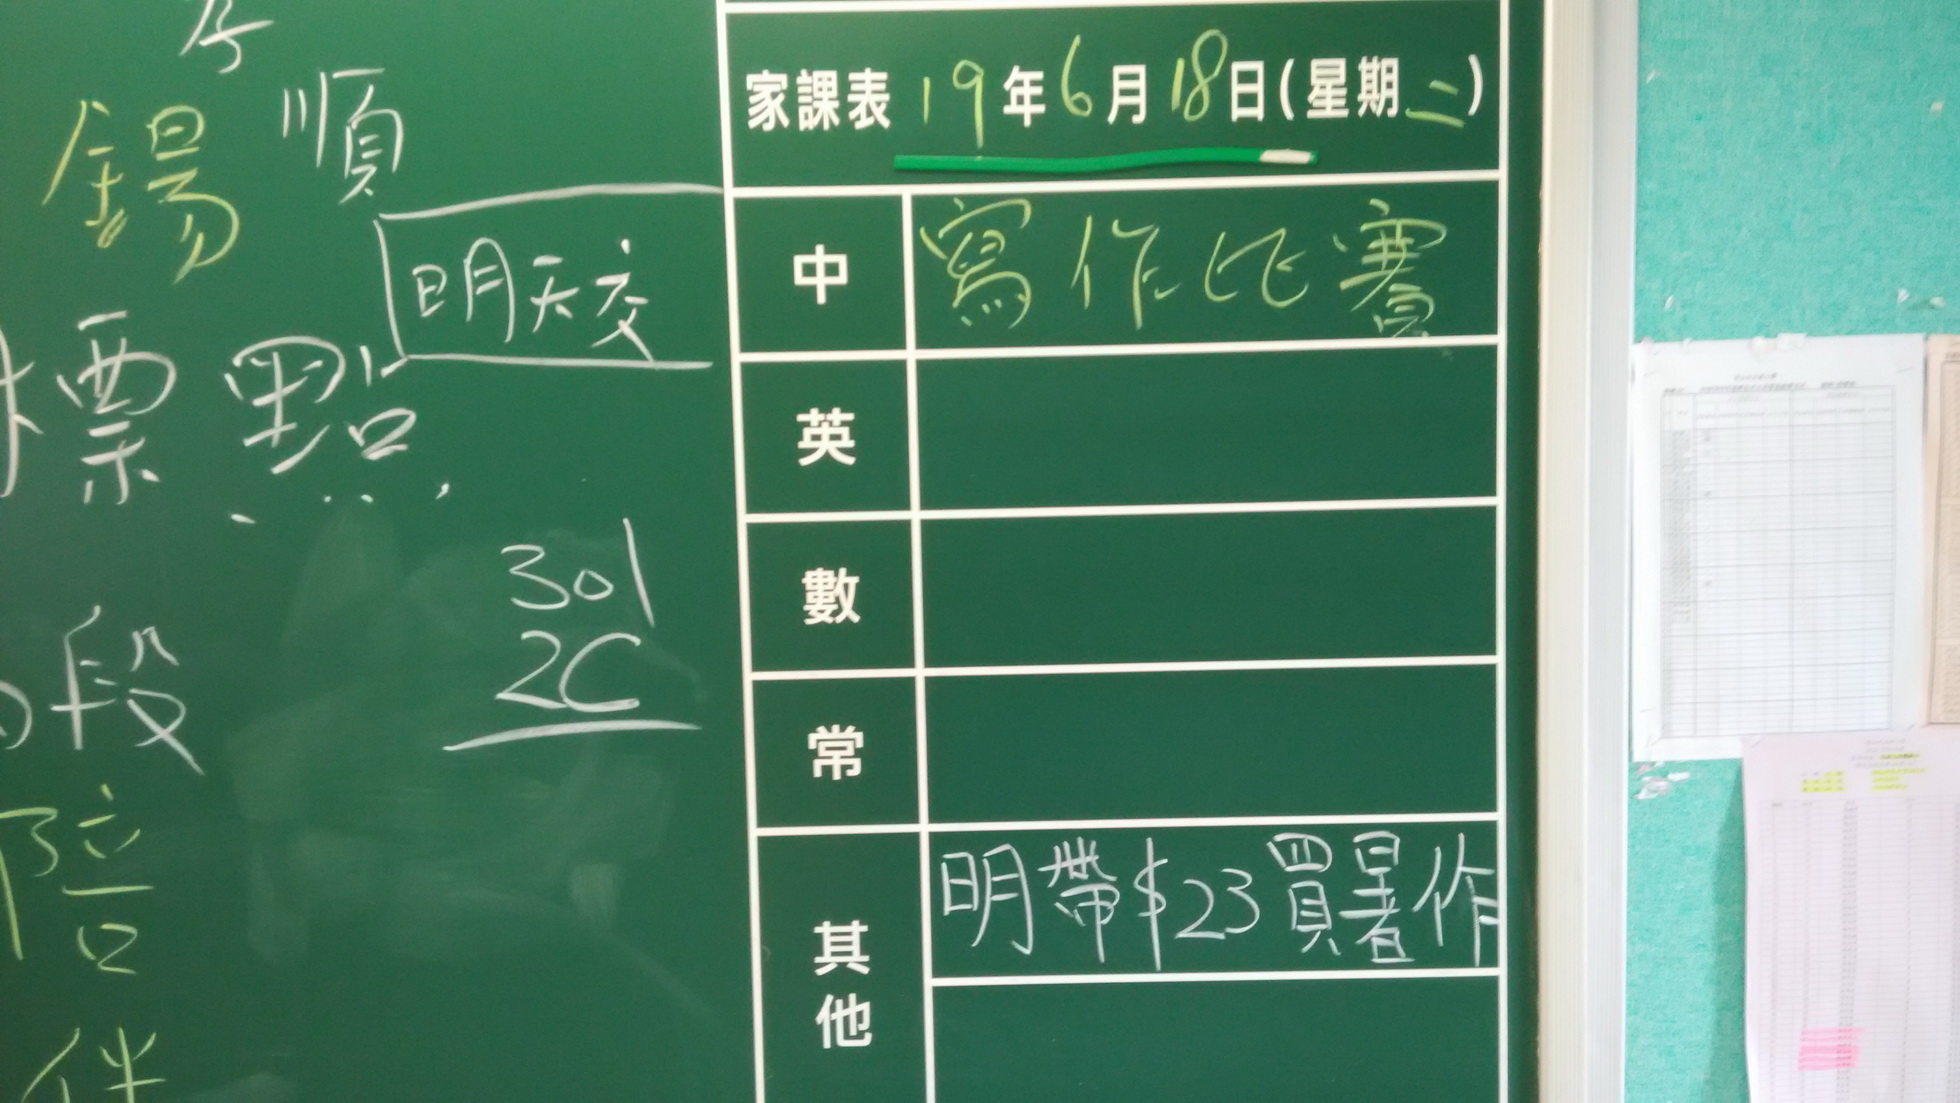 家課表 19年6月18日(星期二)
中 寫作比賽
英
數
常
其他 明帶$23買暑作
錫 順
明天交
標點
段
301
2C
陪
伴